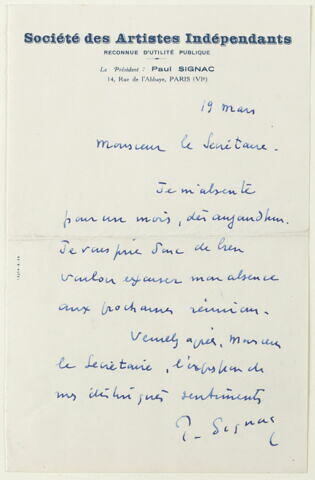 Société des Artistes Indépendants
RECONNUE D'UTILITÉ PUBLIQUE
Le Président : Paul SIGNAC
14, Rue de l'Abbaye, PARIS (VIe)
19 mars
Monsieur le Secrétaire.
Je m'absente
pour un mois, dès aujourdhui.
Je vous prie donc de bien
vouloir excuser mon absence
aux prochaines réunions.
Veuillez agréer, Monsieur
le Secrétaire, l'expression de
mes distingués sentiments
P. Signac